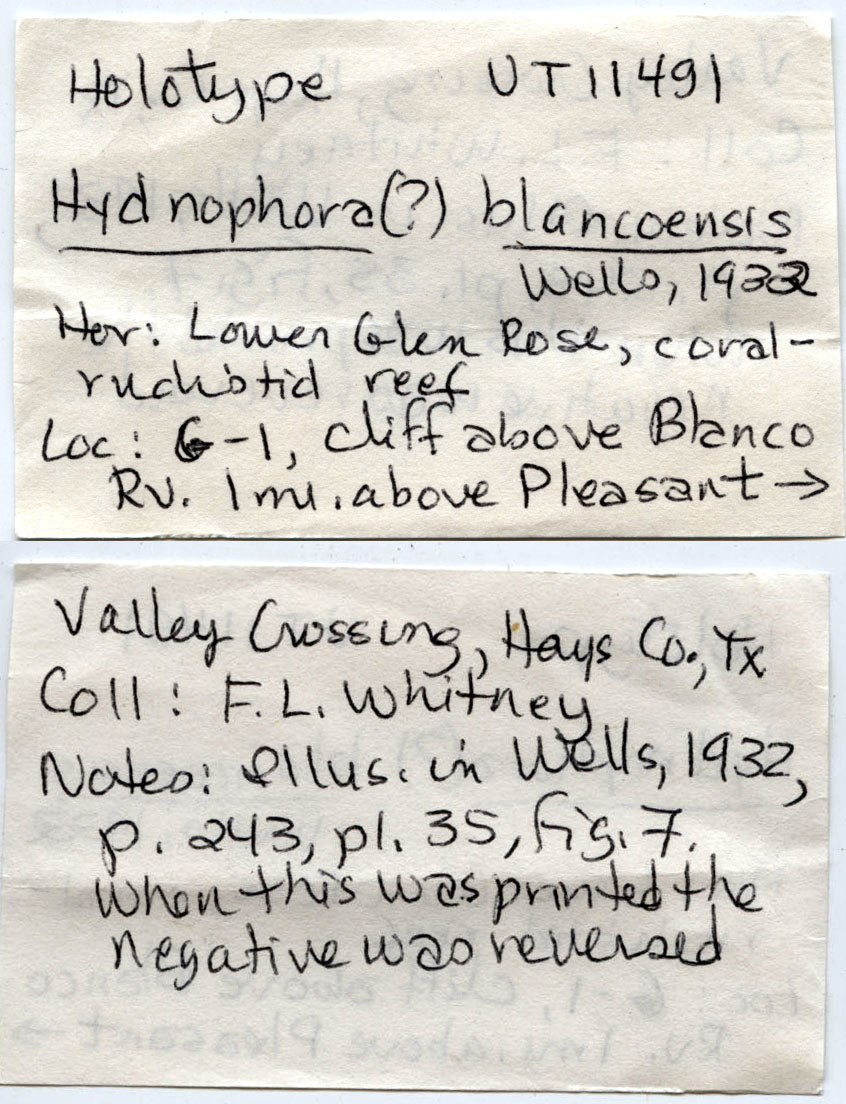 Holotype UT11491
Hydnophora(?) blancoensis
Wells, 1932
Hor: Lower Glen Rose, coral-
rudistid reef
Loc: G-1, cliff above Blanco
Rv. 1 mi. above Pleasant →
Valley Crossing, Hays Co., Tx
Coll: F.L. Whitney
Notes: Illus. in Wells, 1932,
p. 243, pl. 35, fig. 7.
When this was printed the
negative was reversed